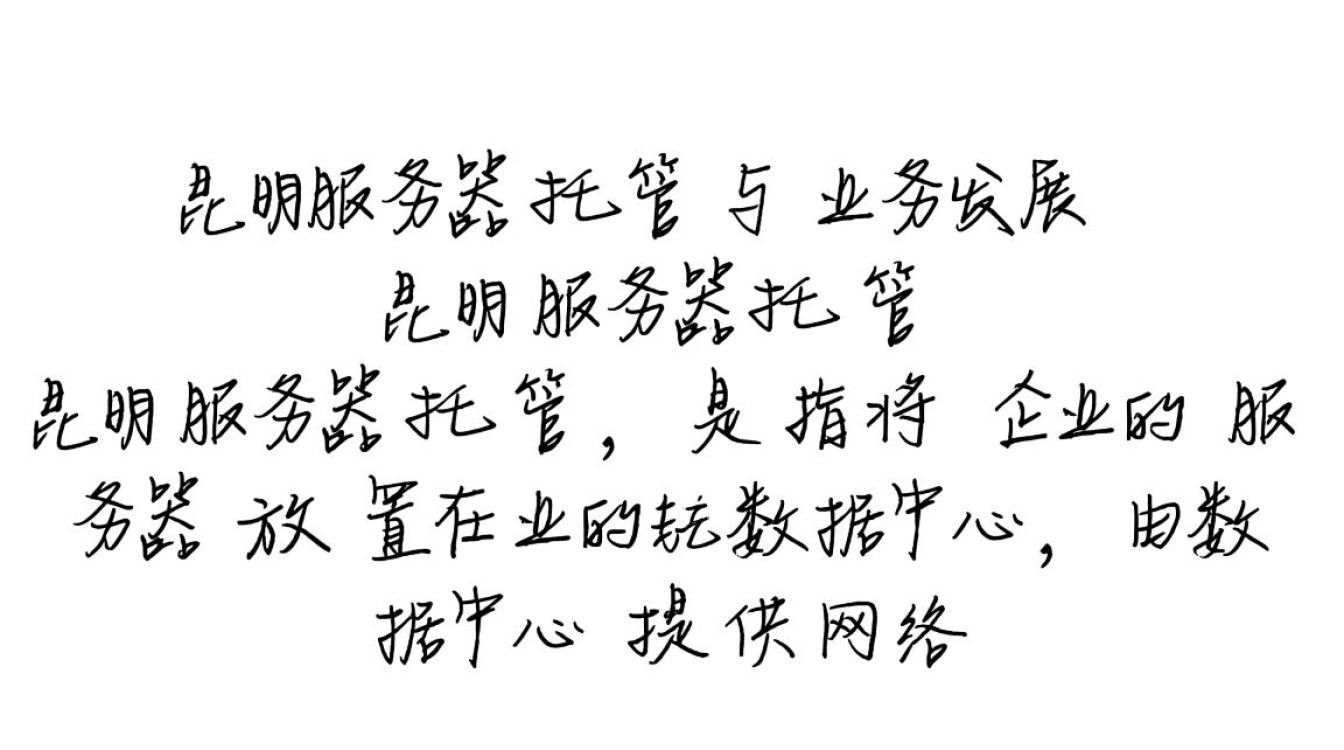 昆明服务器托管与业务发展
昆明服务器托管
昆明服务器托管，是指将企业的服
务器放置在业的数据中心，由数
据中心提供网络